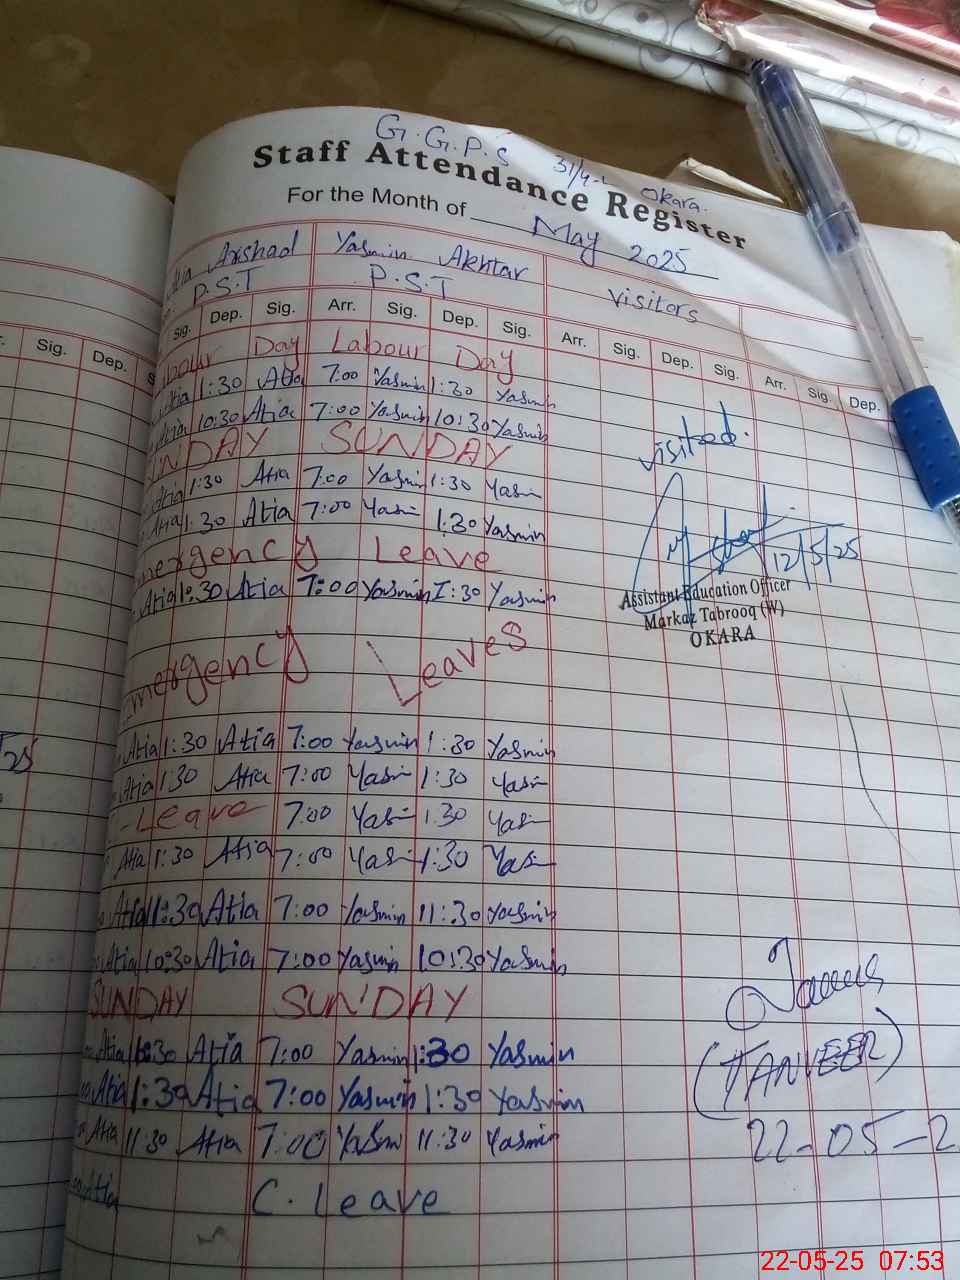 G.G.P.S 31/4-L Okara.
Staff Attendance Register
For the Month of May 2025
Arshad Yasmin Akhtar Visitors
P.S.T P.S.T
Sig. Dep. Sig. Dep. Sig. Arr. Sig. Dep. Sig. Arr. Sig. Dep. Sig. Arr. Sig. Dep.
Labour Day Labour Day
Atia 1:30 Atia 7:00 Yasmin 1:30 Yasmin
Atia 10:30 Atia 7:00 Yasmin 10:30 Yasmin
SUNDAY SUNDAY
visited.
Atia 1:30 Atia 7:00 Yasmin 1:30 Yasmin
Atia 1:30 Atia 7:00 Yasmin 1:30 Yasmin
12/5/25
Emergency Leave
Atia 1:30 Atia 7:00 Yasmin 1:30 Yasmin
Assistant Education Officer
Markaz Tabrooq (W)
OKARA
Emergency Leaves
Atia 1:30 Atia 7:00 Yasmin 1:30 Yasmin
25
Atia 1:30 Atia 7:00 Yasmin 1:30 Yasmin
- Leave 7:00 Yasmin 1:30 Yasmin
Atia 1:30 Atia 7:00 Yasmin 1:30 Yasmin
Atia 11:30 Atia 7:00 Yasmin 11:30 Yasmin
Atia 10:30 Atia 7:00 Yasmin 10:30 Yasmin
SUNDAY SUNDAY
Atia 1:30 Atia 7:00 Yasmin 1:30 Yasmin
(TANVEER)
Atia 1:30 Atia 7:00 Yasmin 1:30 Yasmin
Atia 11:30 Atia 7:00 Yasmin 11:30 Yasmin
22-05-2
Atia C. Leave
22-05-25 07:53